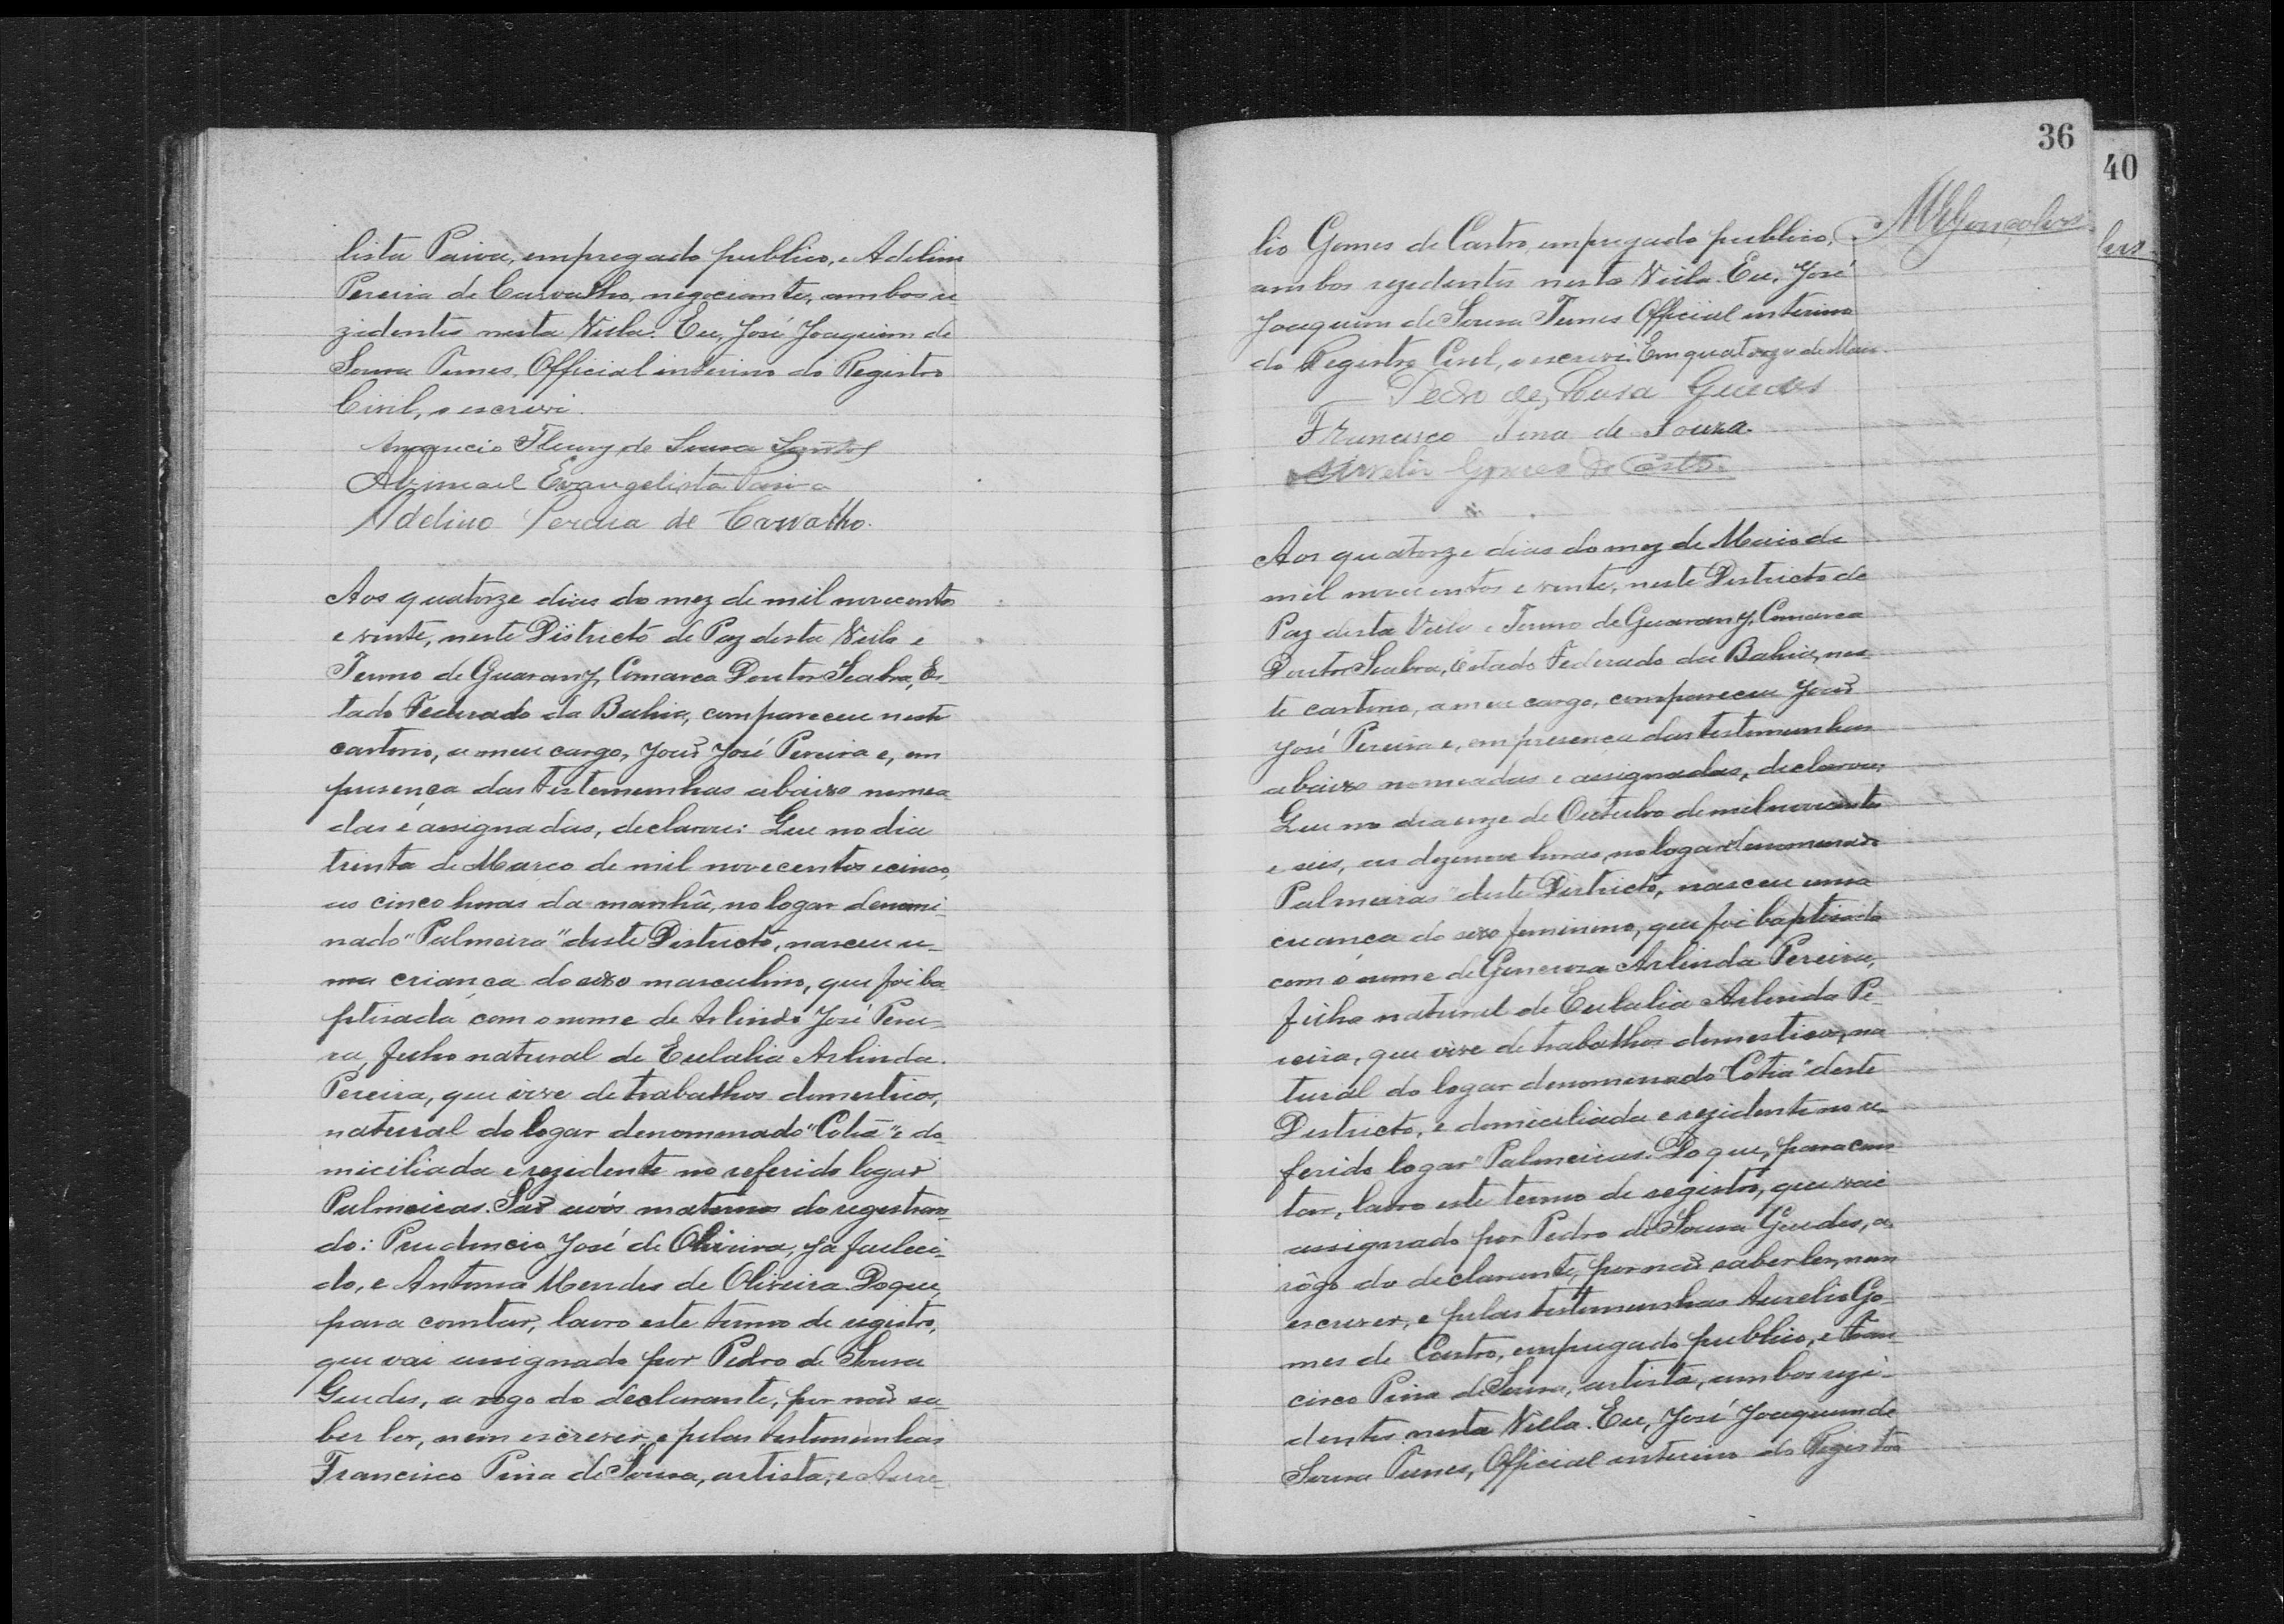 lista Paiva, empregado publico, e Adelino
Pereira de Carvalho, negociante, ambos re
zidentes nesta Villa. Eu, José Joaquim de
Sousa Tunes, Official interino do Registro
Civil, o escrevi.
Amancio Fleury de Sousa Santos
Abimael Evangelista Paiva
Adelino Pereira de Carvalho.
Aos quatorze dias do mez de mil novecentos
e vinte, neste Districto de Paz desta Villa e
Termo de Guarany, Comarca Doutor Seabra, Es-
tado Federado da Bahia, compareceu neste
cartorio, a meu cargo, João José Pereira e, em
presença das testemunhas abaixo nomea-
das e assignadas, declarou: Que no dia
trinta de Março de mil novecentos e cinco,
as cinco horas da manhã, no logar denomi-
nado "Palmeira" deste Districto, nasceu u-
ma criança do sexo masculino, que foi ba-
ptisada com o nome de Arlindo José Perei-
ra, filho natural de Eulalia Arlinda
Pereira, que vive de trabalhos domesticos,
natural do logar denomenado "Cotia" e do-
miciliada e rezidente no referido logar
Palmeiras. São avós maternos do registran-
do: Prudencio José de Oliveira, já faleci-
do, e Antonia Mendes de Oliveira. Do que,
para constar, lavro este termo de registro,
que vai assignado por Pedro de Sousa
Guedes, a rogo do declarante, por não sa-
ber ler, nem escrever, e pelas testemunhas
Francisco Pina de Sousa, artista, e Aure-
36
40
MEGonçalves
lves
lio Gomes de Castro, empregado publico,
ambos rezidentes nesta Villa. Eu, José
Joaquim de Sousa Tunes Official interino
do Registro Civel, o escrevi. Em quatorze de Maio.
Pedro de Sousa Guedes
Francisco Pina de Souza.
Aurelio Gomes de Castro
Aos quatorze dias do mez de Maio de
mil novecentos e vinte, neste Districto de
Paz desta Villa e Termo de Guarany, Comarca
Doutor Seabra, Estado Federado da Bahia, nes-
te cartorio, a meu cargo, compareceu João
José Pereira e, em presença das testemunhas
abaixo nomeadas e assignadas, declarou:
Que no dia onze de Outubro de mil novecentos
e seis, as dezenove horas, no logar denomenado
Palmeiras" deste Districto, nasceu uma
creança do sexo feminino, que foi baptisada
com o nome de Generoza Arlinda Pereira,
filha natural de Eulalia Arlinda Pe-
reira, que vive de trabalhos domesticos, na
tural do logar denomenado "Cotia" deste
Districto, e domiciliada e rezidente no re-
ferido logar "Palmeiras. Do que, para cons-
tar, lavro este termo de registro, que vai
assignado por Pedro de Sousa Guedes, a
rôgo do declarante, por não saber ler, nem
escrever, e pelas testemunhas Aurelio Go-
mes de Castro, empregado publico, e Fran
cisco Pina de Sousa, artista, ambos rezi-
dentes nesta Villa. Eu, José Joaquim de
Sousa Tunes, Official interino do Registro